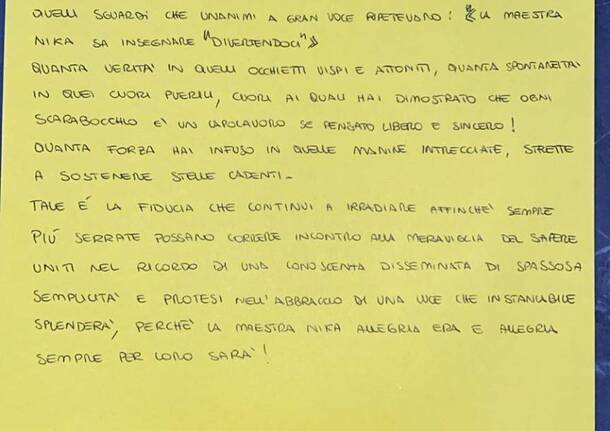 QUELLI SGUARDI CHE UNANIMI A GRAN VOCE RIPETEVANO: 《LA MAESTRA
NIKA SA INSEGNARE "DIVERTENDOCI"》
QUANTA VERITA' IN QUELLI OCCHIETTI VISPI E ATTONITI, QUANTA SPONTANEITA'
IN QUEI CUORI PUERILI, CUORI AI QUALI HAI DIMOSTRATO CHE OGNI
SCARABOCCHIO E' UN CAPOLAVORO SE PENSATO LIBERO E SINCERO!
QUANTA FORZA HAI INFUSO IN QUELLE MANINE INTRECCIATE, STRETTE
A SOSTENERE STELLE CADENTI.
TALE E' LA FIDUCIA CHE CONTINUI A IRRADIARE AFFINCHE' SEMPRE
PIU' SERRATE POSSANO CORRERE INCONTRO ALLA MERAVIGLIA DEL SAPERE
UNITI NEL RICORDO DI UNA CONOSCENZA DISSEMINATA DI SPASSOSA
SEMPLICITA' E PROTESI NELL'ABBRACCIO DI UNA LUCE CHE INSTANCABILE
SPLENDERA', PERCHE' LA MAESTRA NIKA ALLEGRIA ERA E ALLEGRIA
SEMPRE PER LORO SARA'!